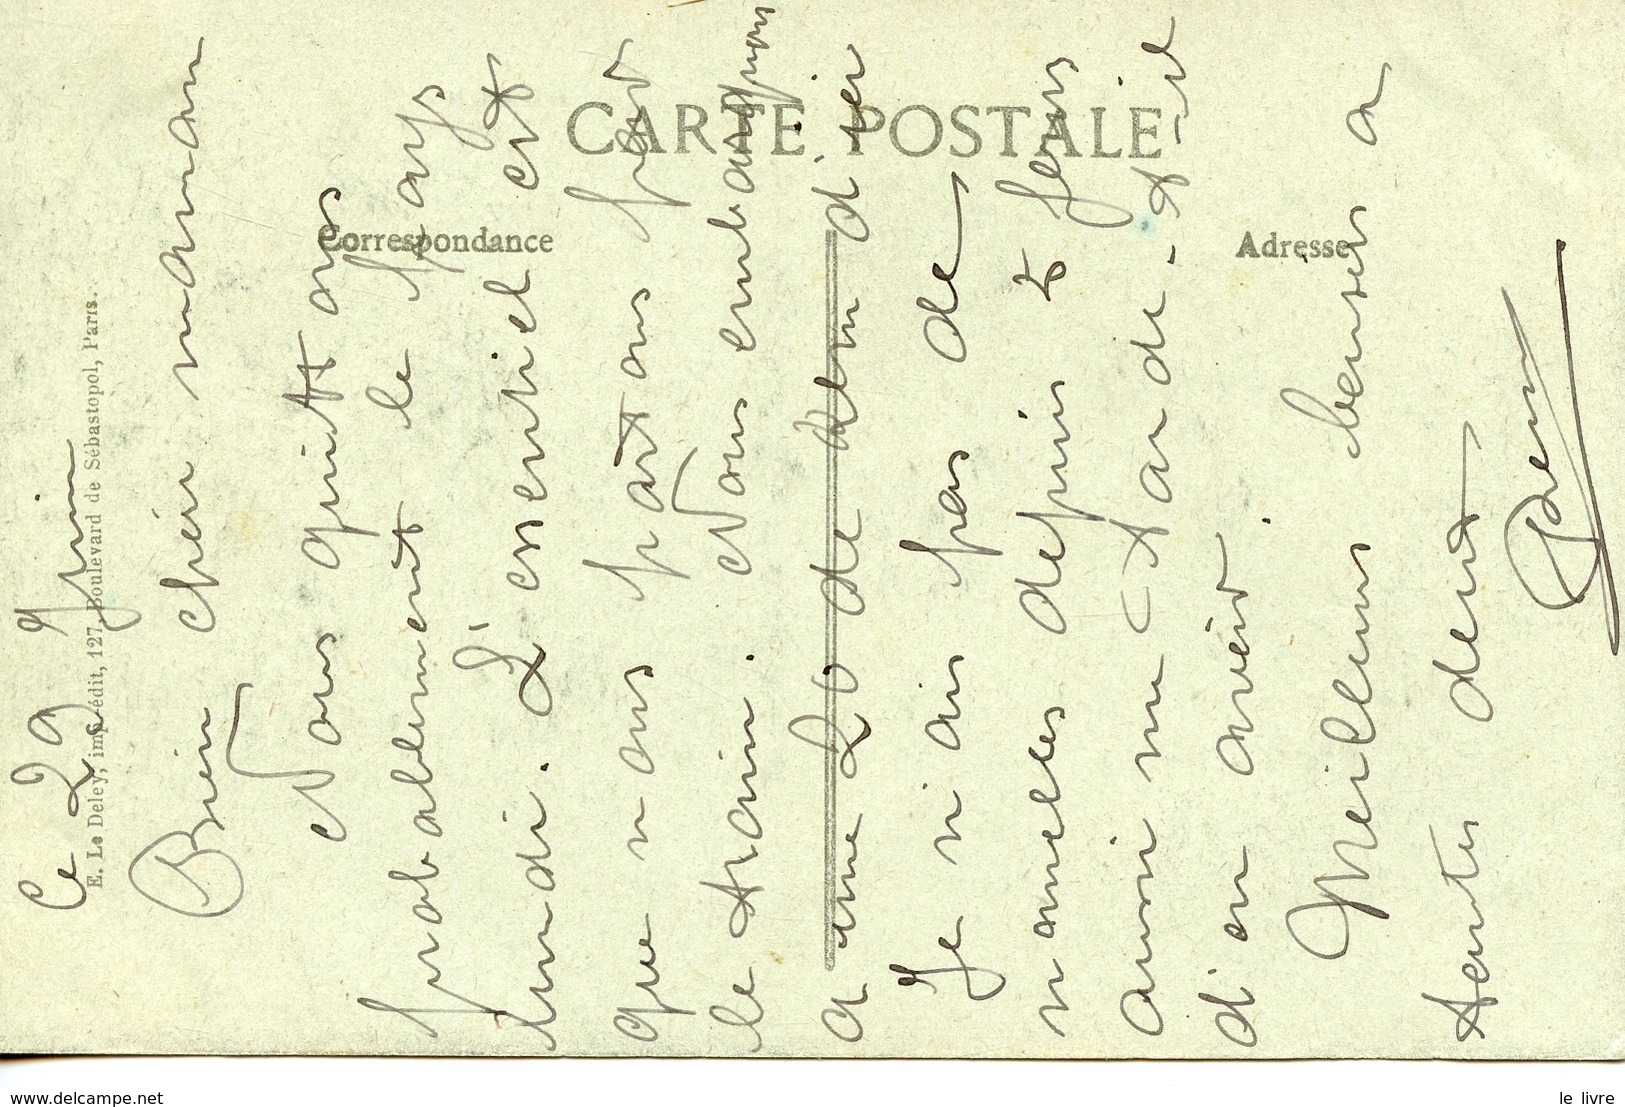 CARTE POSTALE
Correspondance
Adresse
E. Le Deley, imp.-édit, 127, Boulevard de Sébastopol, Paris.
Ce 29 Juin
Bien chère maman
Nous quittons
probablement le pays
lundi. L'essentiel est
que nous partons pour
le train. Nous embarquons
a une de d'ici
Je n'ai pas de
nouvelles depuis
aussi me tarde-t-il
d'en avoir.
Meilleurs baisers a
toutes deux
www.delcampe.net
le livre